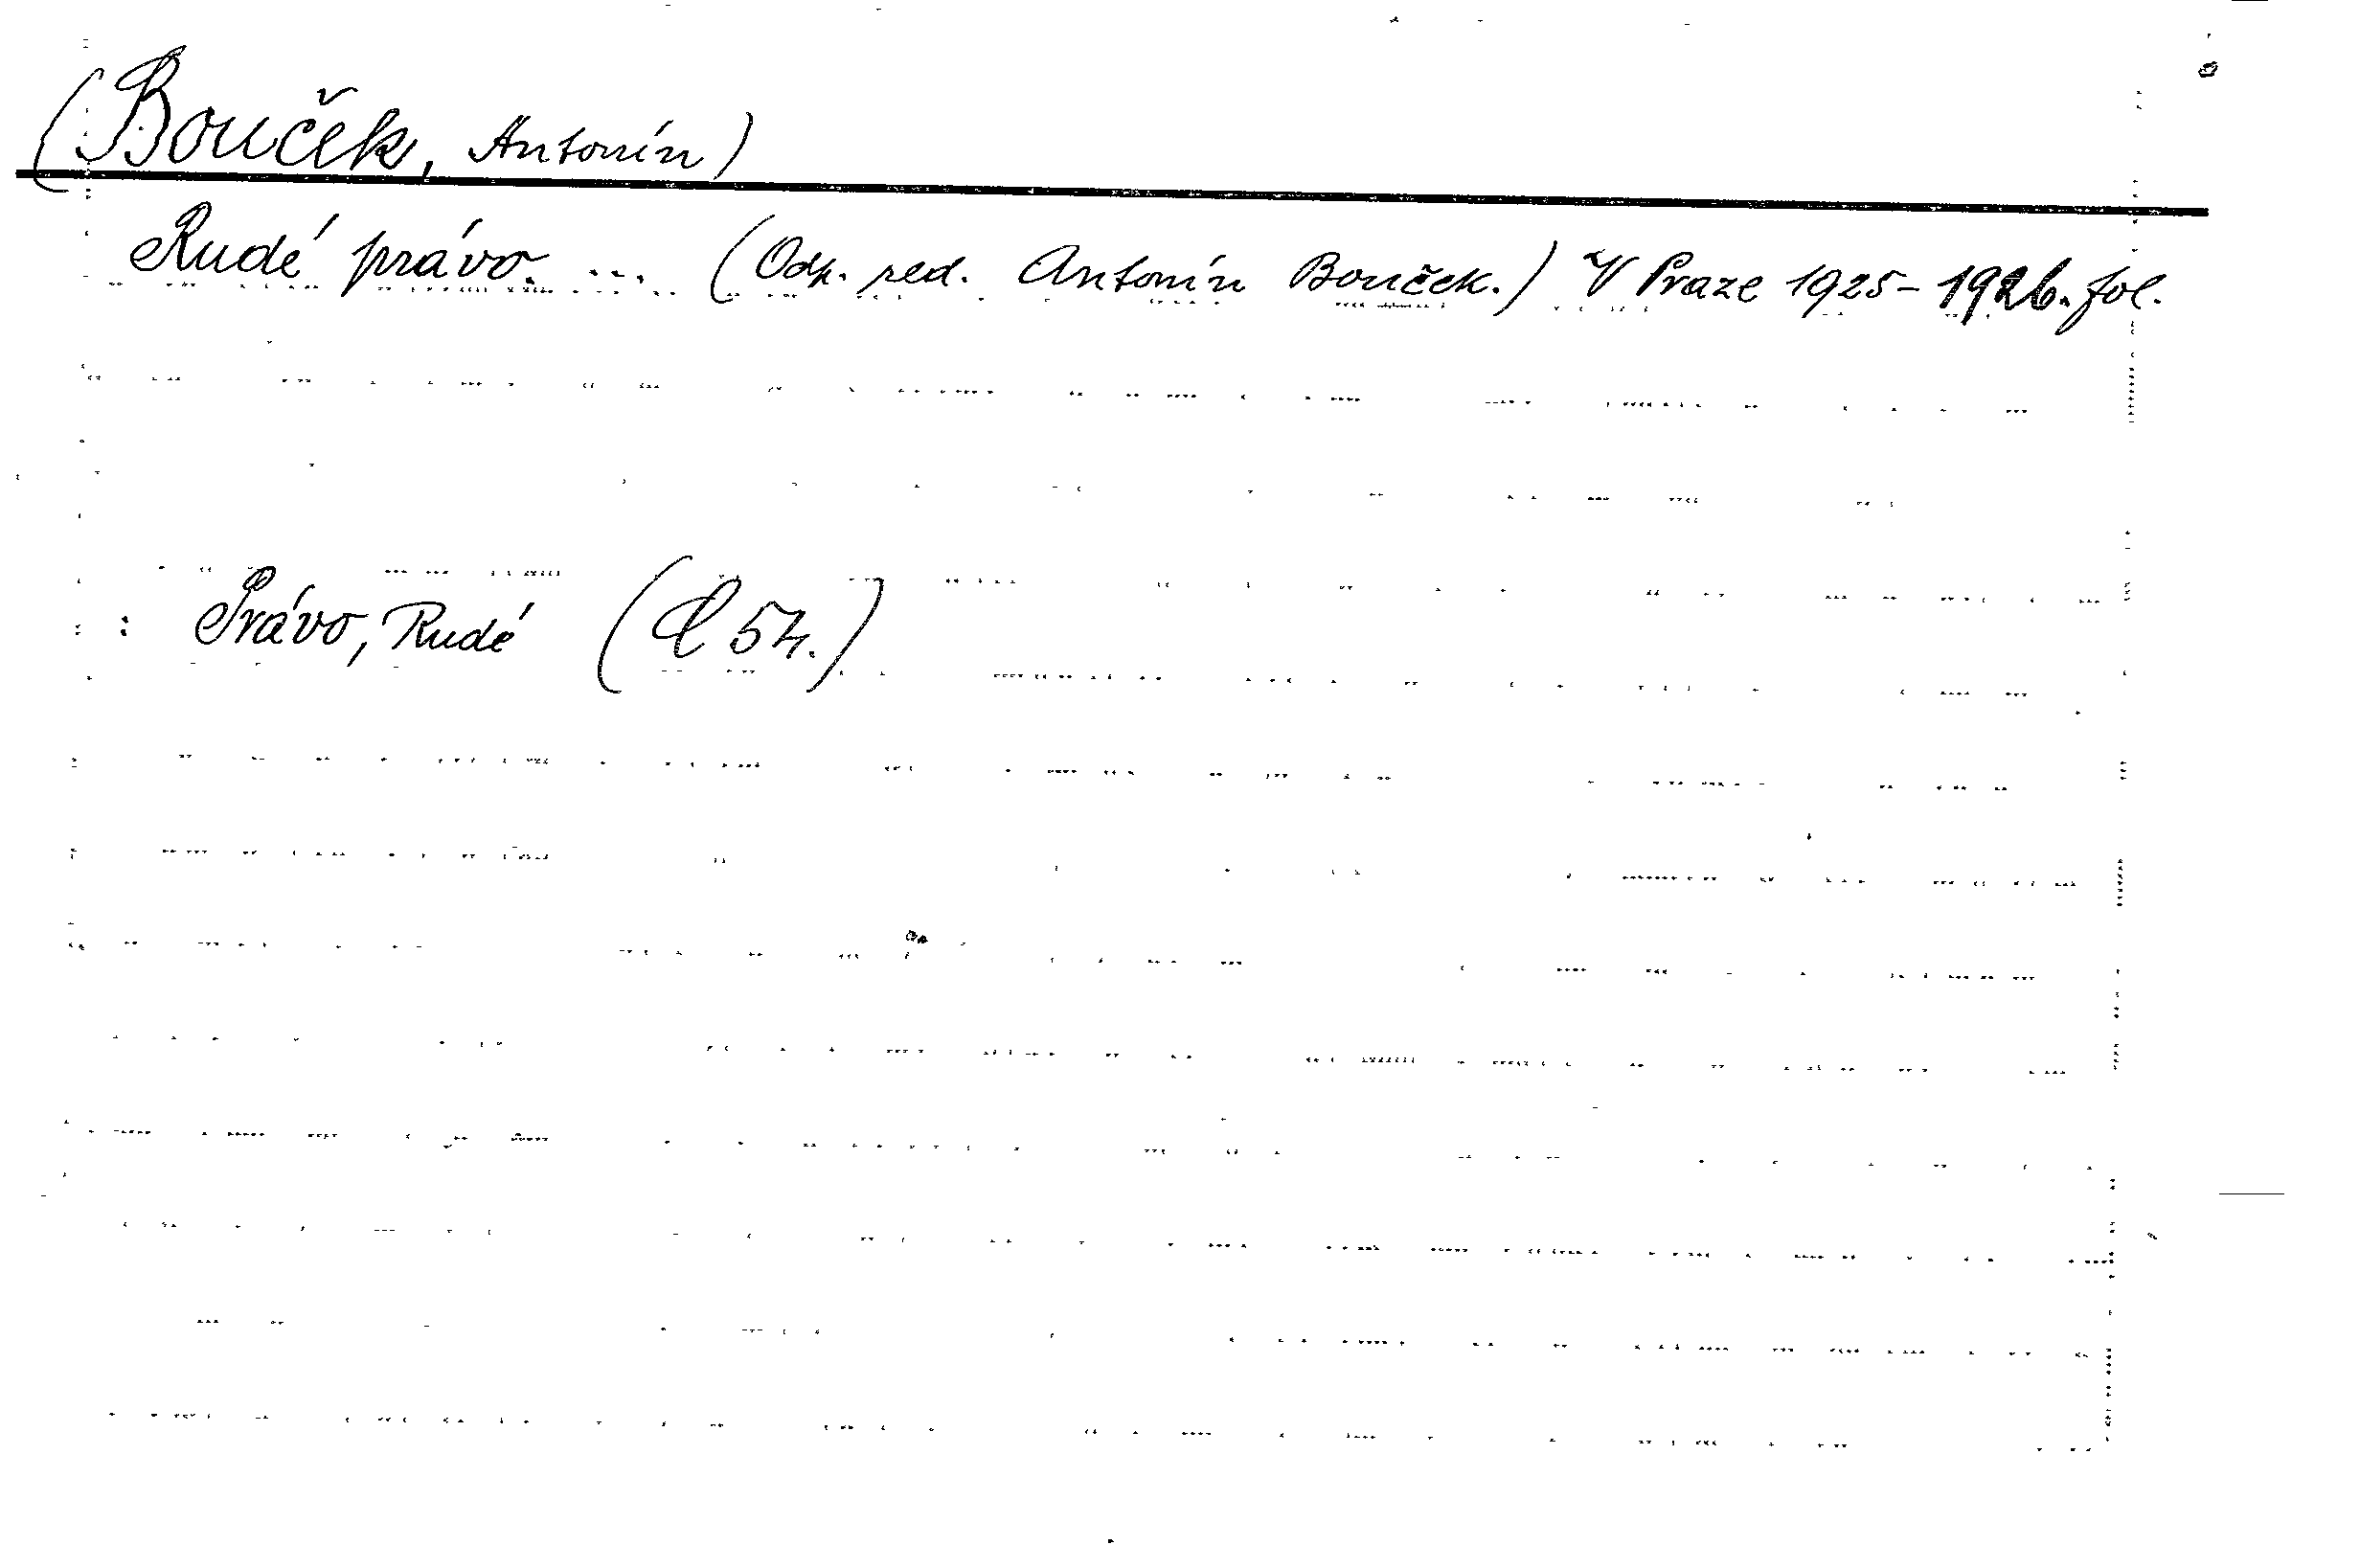 (Bouček, Antonín)
Rudé právo. ... (Odp. red. Antonín Bouček.) V Praze 1925-1926. fol.
: Právo, Rudé (C 54.)